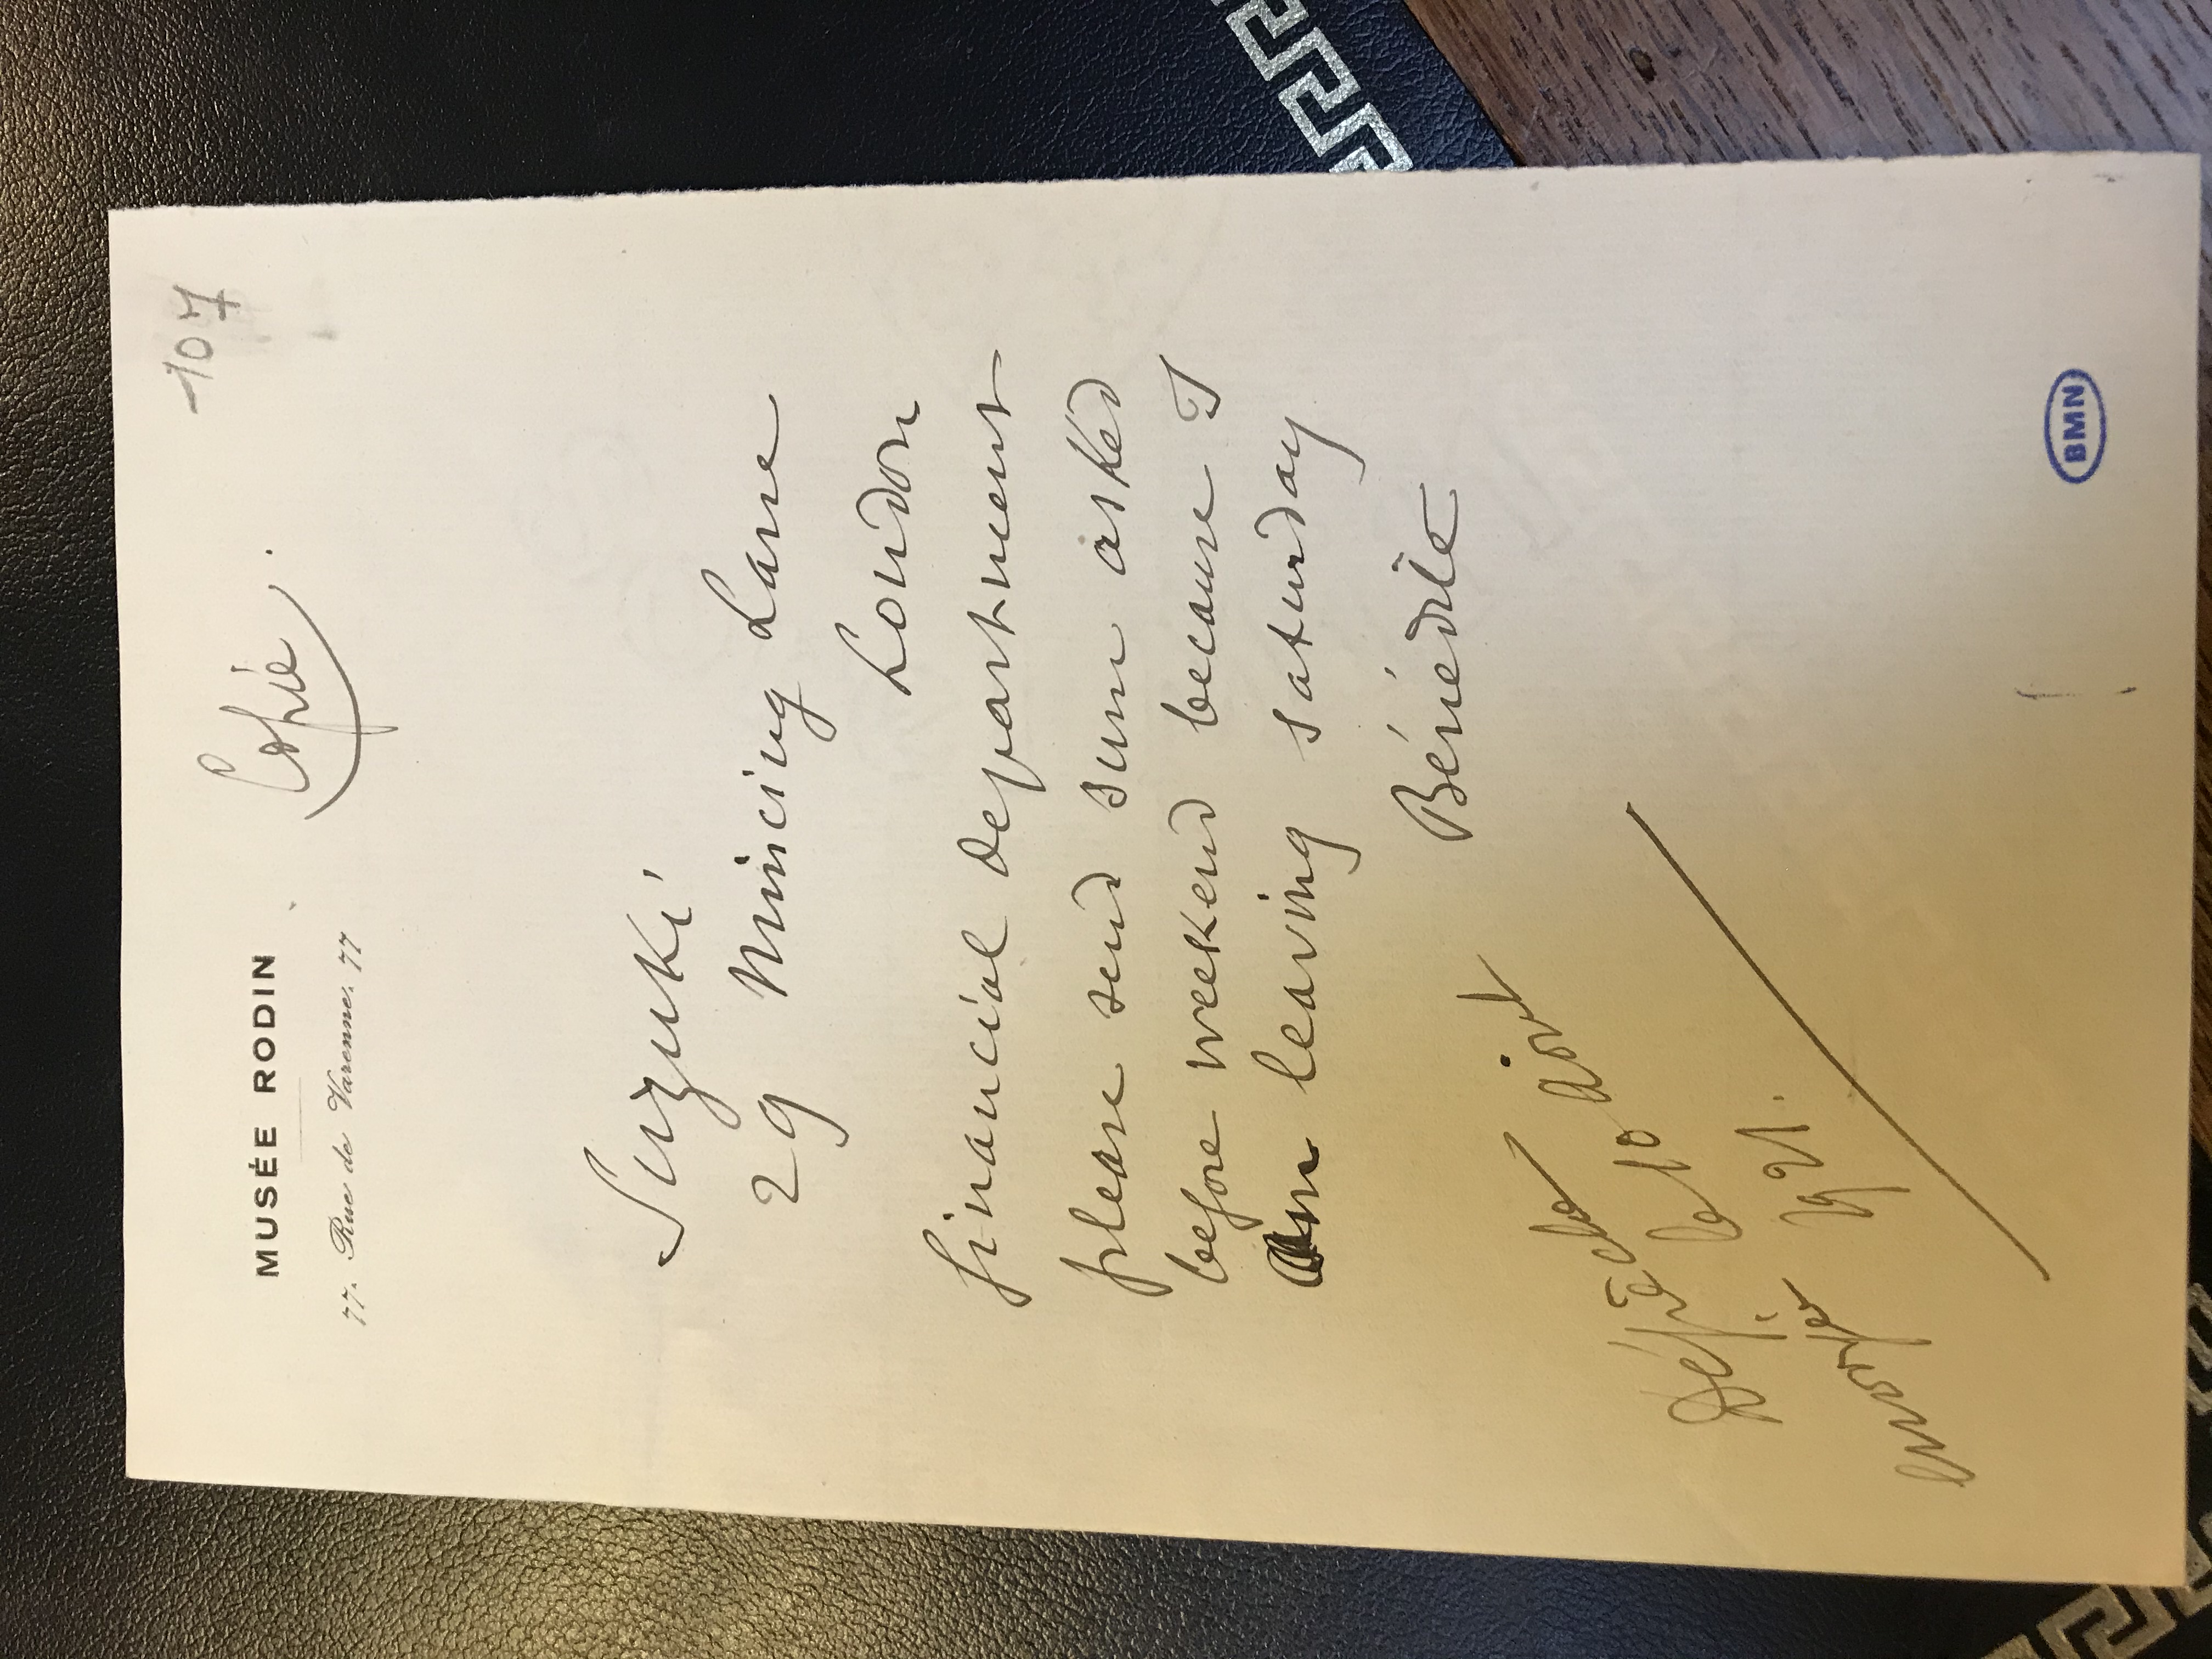 107
MUSÉE RODIN
77, Rue de Varenne, 77
Copie.
Suzuki
29 Mincing Lane
London
financial department
please send sum asked
before weekend because I
am leaving saturday
Bénédite
Dépêche
envoyée
le 10 août
1921.
BMN